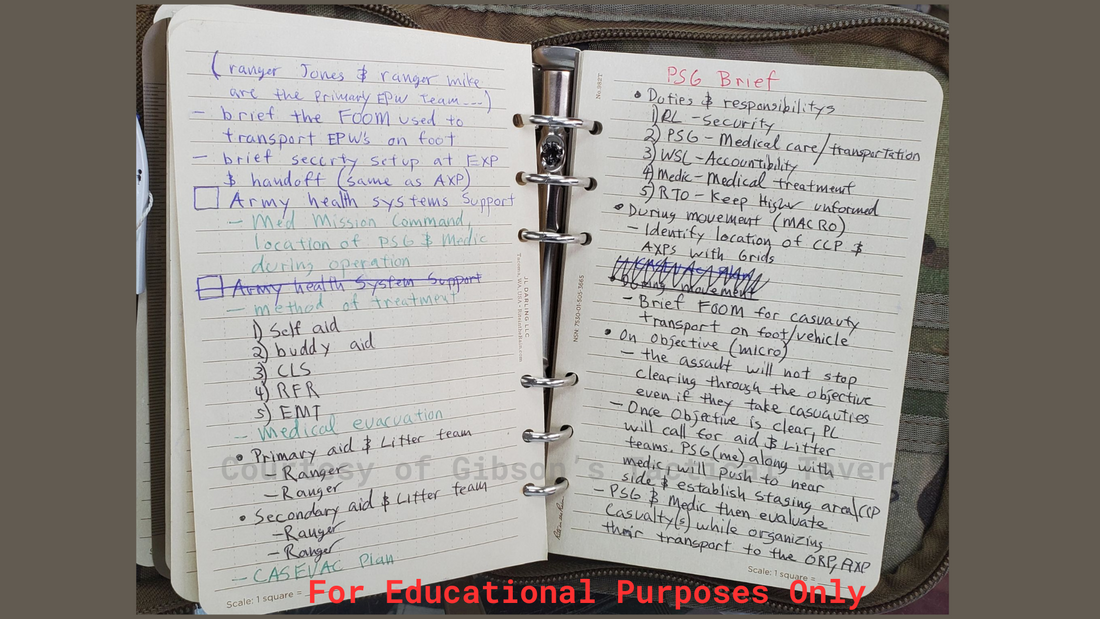 (ranger Jones & ranger mike
are the primary EPW Team ---)
- brief the FOOM used to
transport EPW's on foot
- brief securty setup at EXP
& handoff (same as AXP)
Army health systems Support
- Med Mission Command,
location of PSG & Medic
during operation
Army health System Support
- method of treatment
1) Self aid
2) buddy aid
3) CLS
4) RFR
5) EMT
- Medical evacuation
• Primary aid & Litter team
- Ranger
- Ranger
• Secondary aid & Litter team
- Ranger
- Ranger
- CASEVAC Plan
Scale: 1 square =
JL DARLING LLC
Tacoma, WA, USA • RiteintheRain.com
PSG Brief
• Duties & responsibilitys
1) PL - Security
2) PSG - Medical care/transportation
3) WSL - Accountibility
4) Medic - Medical treatment
5) RTO - Keep Higher unformed
• During movement (MACRO)
- Identify location of CCP &
AXPs with Grids
• During movement
- Brief FOOM for casuavty
transport on foot/vehicle
• On Objective (micro)
- the assault will not stop
clearing through the objective
even if they take casuavties
- Once Objective is clear, PL
will call for aid & Litter
teams. PSG (me) along with
medic will push to near
side & establish stasing area/CCP
- PSG & Medic then evaluate
Casualty(s) while organizing
their transport to the ORP, AXP
Scale: 1 square =
NSN: 7530-01-505-3665
Courtesy of Gibson's Tactical Tavern
For Educational Purposes Only